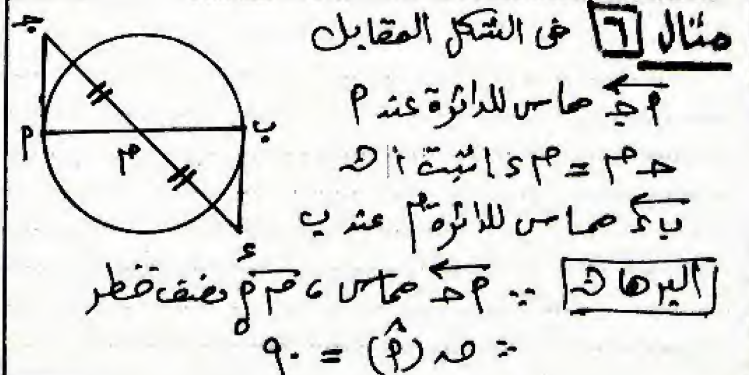 مثال ٦ فى الشكل المقابل
أجـ مماس للدائرة عند أ
جـ م = م ء اثبت ان
ب ء مماس للدائرة م عند ب
البرهان ∵ أجـ مماس ، م أ نصف قطر
∴ ق (أ) = ٩٠
جـ
أ
م
ب
ء